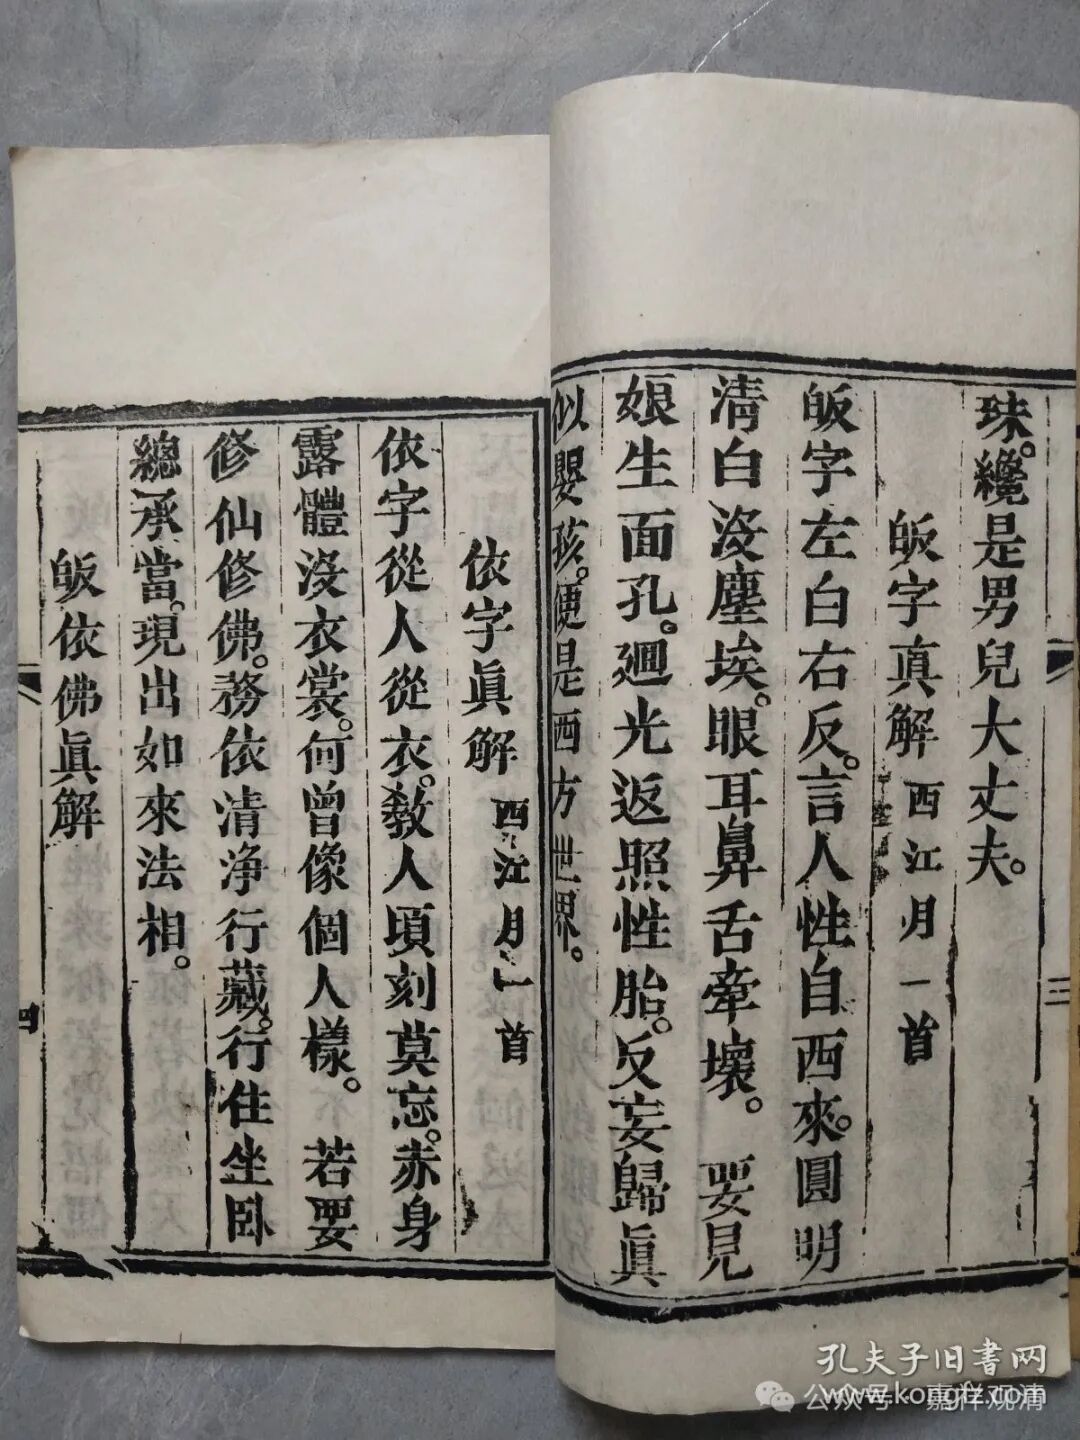 珠。纔是男兒大丈夫。
皈字真解 西江月一首
皈字左白右反。言人性自西來。圓明
清白没塵埃。眼耳鼻舌牽壞。 要見
娘生面孔。廻光返照性胎。反妄歸眞
似嬰孩。便是西方世界。
三
依字眞解 西江月一首
依字從人從衣。敎人頃刻莫忘。赤身
露體没衣裳。何曾像個人樣。 若要
修仙修佛。務依清净行藏。行住坐卧
總承當。現出如來法相。
皈依佛眞解
四
孔夫子旧書网
www.kongfz.com
公众号·嘉祥观清